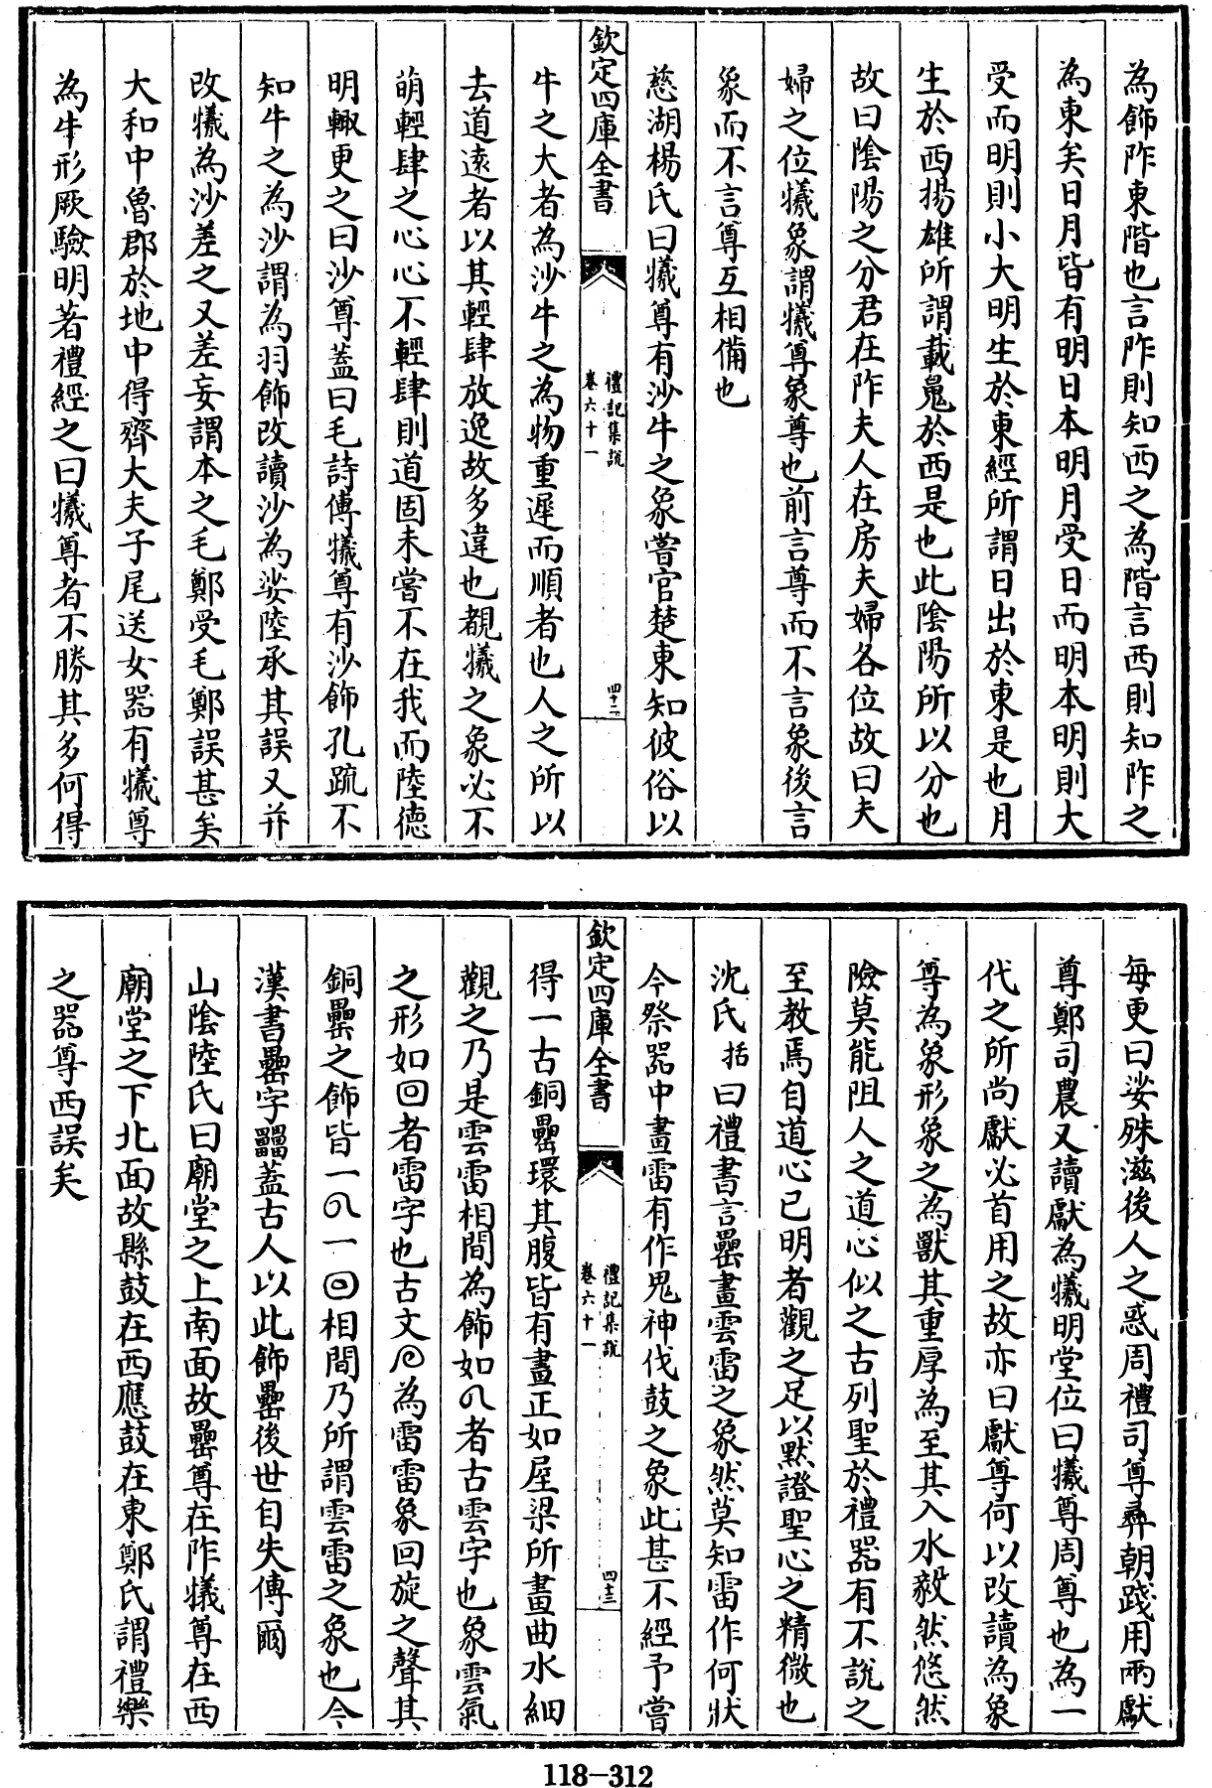 為飾阼東階也言阼則知西之為階言西則知阼之
為東矣日月皆有明日本明月受日而明本明則大
受而明則小大明生於東經所謂日出於東是也月
生於西揚雄所謂載䰟於西是也此陰陽所以分也
故曰陰陽之分君在阼夫人在房夫婦各位故曰夫
婦之位犧象謂犧尊象尊也前言尊而不言象後言
象而不言尊互相備也
慈湖楊氏曰犧尊有沙牛之象嘗官楚東知彼俗以
欽定四庫全書
禮記集說
卷六十一
四十二
牛之大者為沙牛之為物重遲而順者也人之所以
去道逺者以其輕肆放逸故多違也覩犧之象必不
萌輕肆之心心不輕肆則道固未嘗不在我而陸德
明輙更之曰沙尊蓋曰毛詩傳犧尊有沙飾孔疏不
知牛之為沙謂為羽飾改讀沙為娑陸承其誤又并
改犧為沙差之又差妄謂本之毛鄭受毛鄭誤甚矣
大和中魯郡於地中得齊大夫子尾送女器有犧尊
為牛形厥驗明著禮經之曰犧尊者不勝其多何得
每更曰娑殊滋後人之惑周禮司尊彛朝踐用兩獻
尊鄭司農又讀獻為犧明堂位曰犧尊周尊也為一
代之所尚獻必首用之故亦曰獻尊何以改讀為象
尊為象形象之為獸其重厚為至其入水毅然悠然
險莫能阻人之道心似之古列聖於禮器有不說之
至教焉自道心已明者觀之足以黙證聖心之精微也
沈氏括曰禮書言罍畫雲雷之象然莫知雷作何狀
今祭器中畫雷有作鬼神伐鼓之象此甚不經予嘗
欽定四庫全書
禮記集說
卷六十一
四十三
得一古銅罍環其腹皆有畫正如屋梁所畫曲水細
觀之乃是雲雷相間為飾如者古雲字也象雲氣
之形如回者雷字也古文為雷雷象回旋之聲其
銅罍之飾皆一一回相間乃所謂雲雷之象也今
漢書罍字蓋古人以此飾罍後世自失傳爾
山陰陸氏曰廟堂之上南面故罍尊在阼犧尊在西
廟堂之下北面故縣鼓在西應鼓在東鄭氏謂禮樂
之器尊西誤矣
118-312